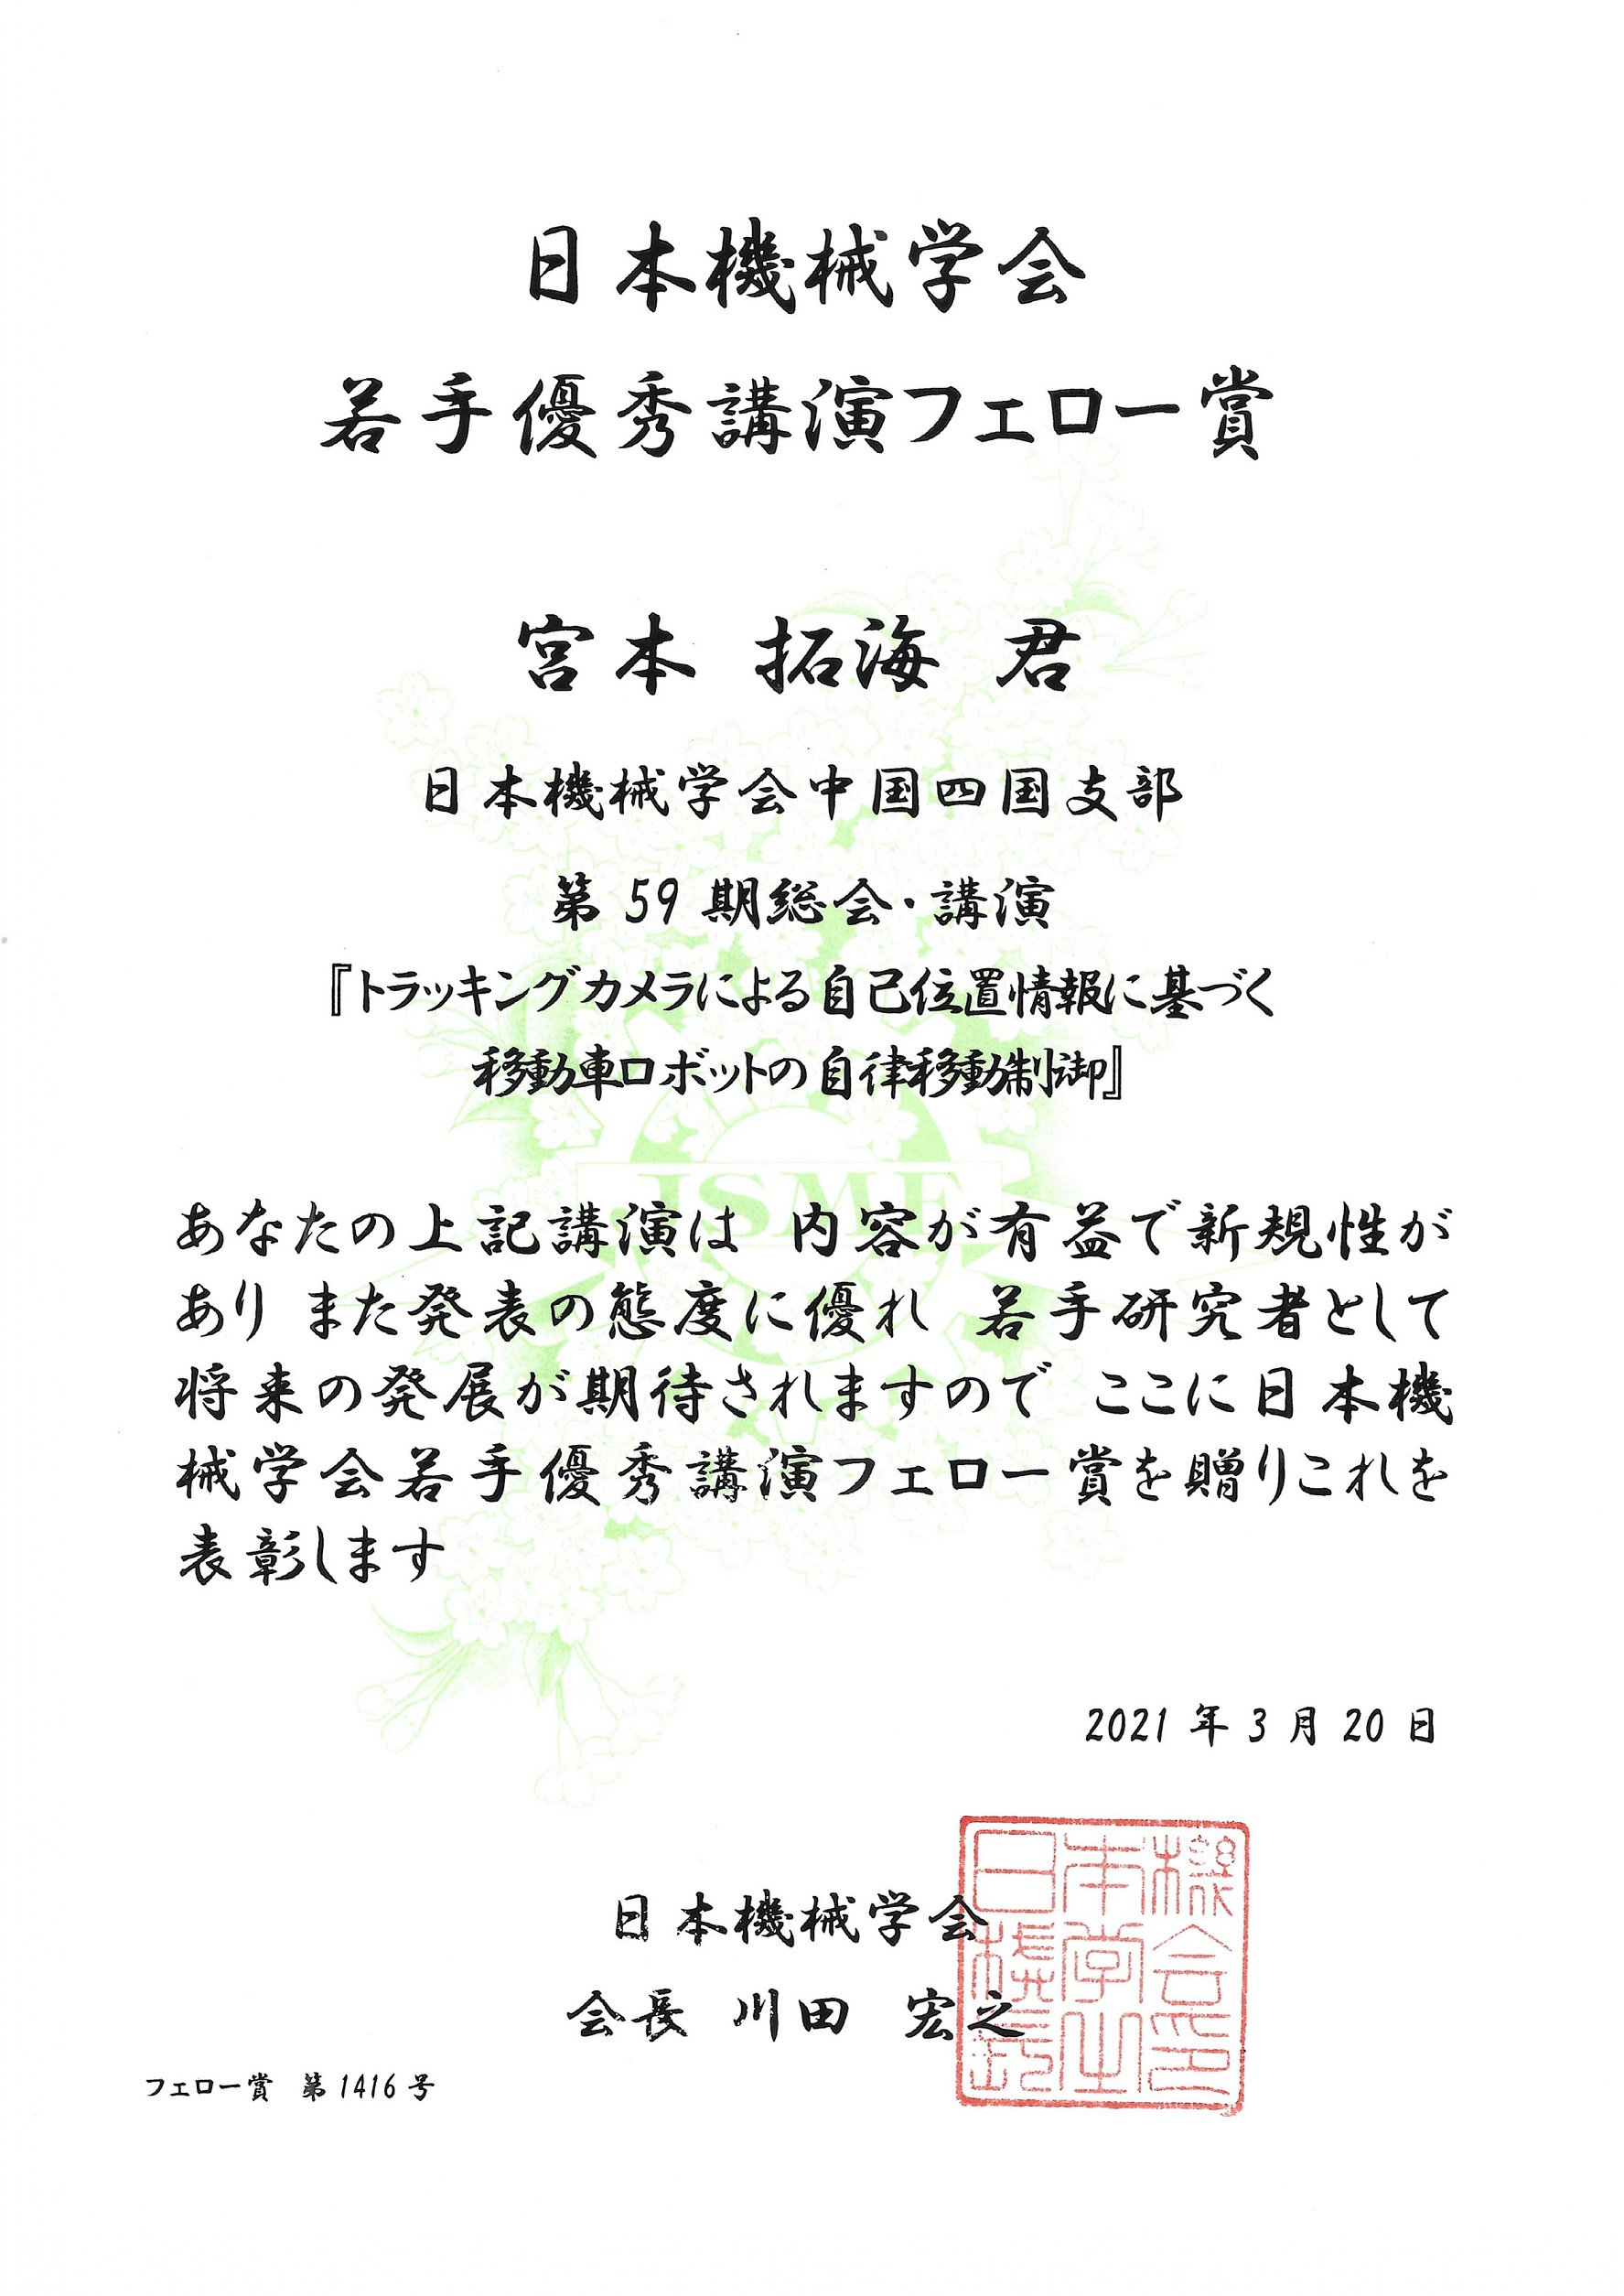 日本機械学会
若手優秀講演フェロー賞
宮本 拓海 君
日本機械学会中国四国支部
第 59 期総会・講演
『トラッキングカメラによる自己位置情報に基づく
移動車ロボットの自律移動制御』
JSME
あなたの上記講演は 内容が有益で新規性が
あり また発表の態度に優れ 若手研究者として
将来の発展が期待されますので ここに日本機
械学会若手優秀講演フェロー賞を贈りこれを
表彰します
2021 年 3 月 20 日
日本機械学会
会長 川田 宏之
フェロー賞 第 1416 号